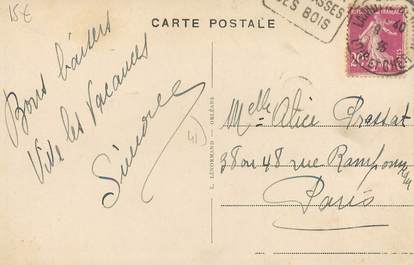 15€
CARTE POSTALE
ASSES
LES BOIS
20
Bons baisers
Vive les vacances
Simone
4)
L. LENORMAND - ORLÉANS
Melle Alice Prassat
38 ou 48 rue
Paris